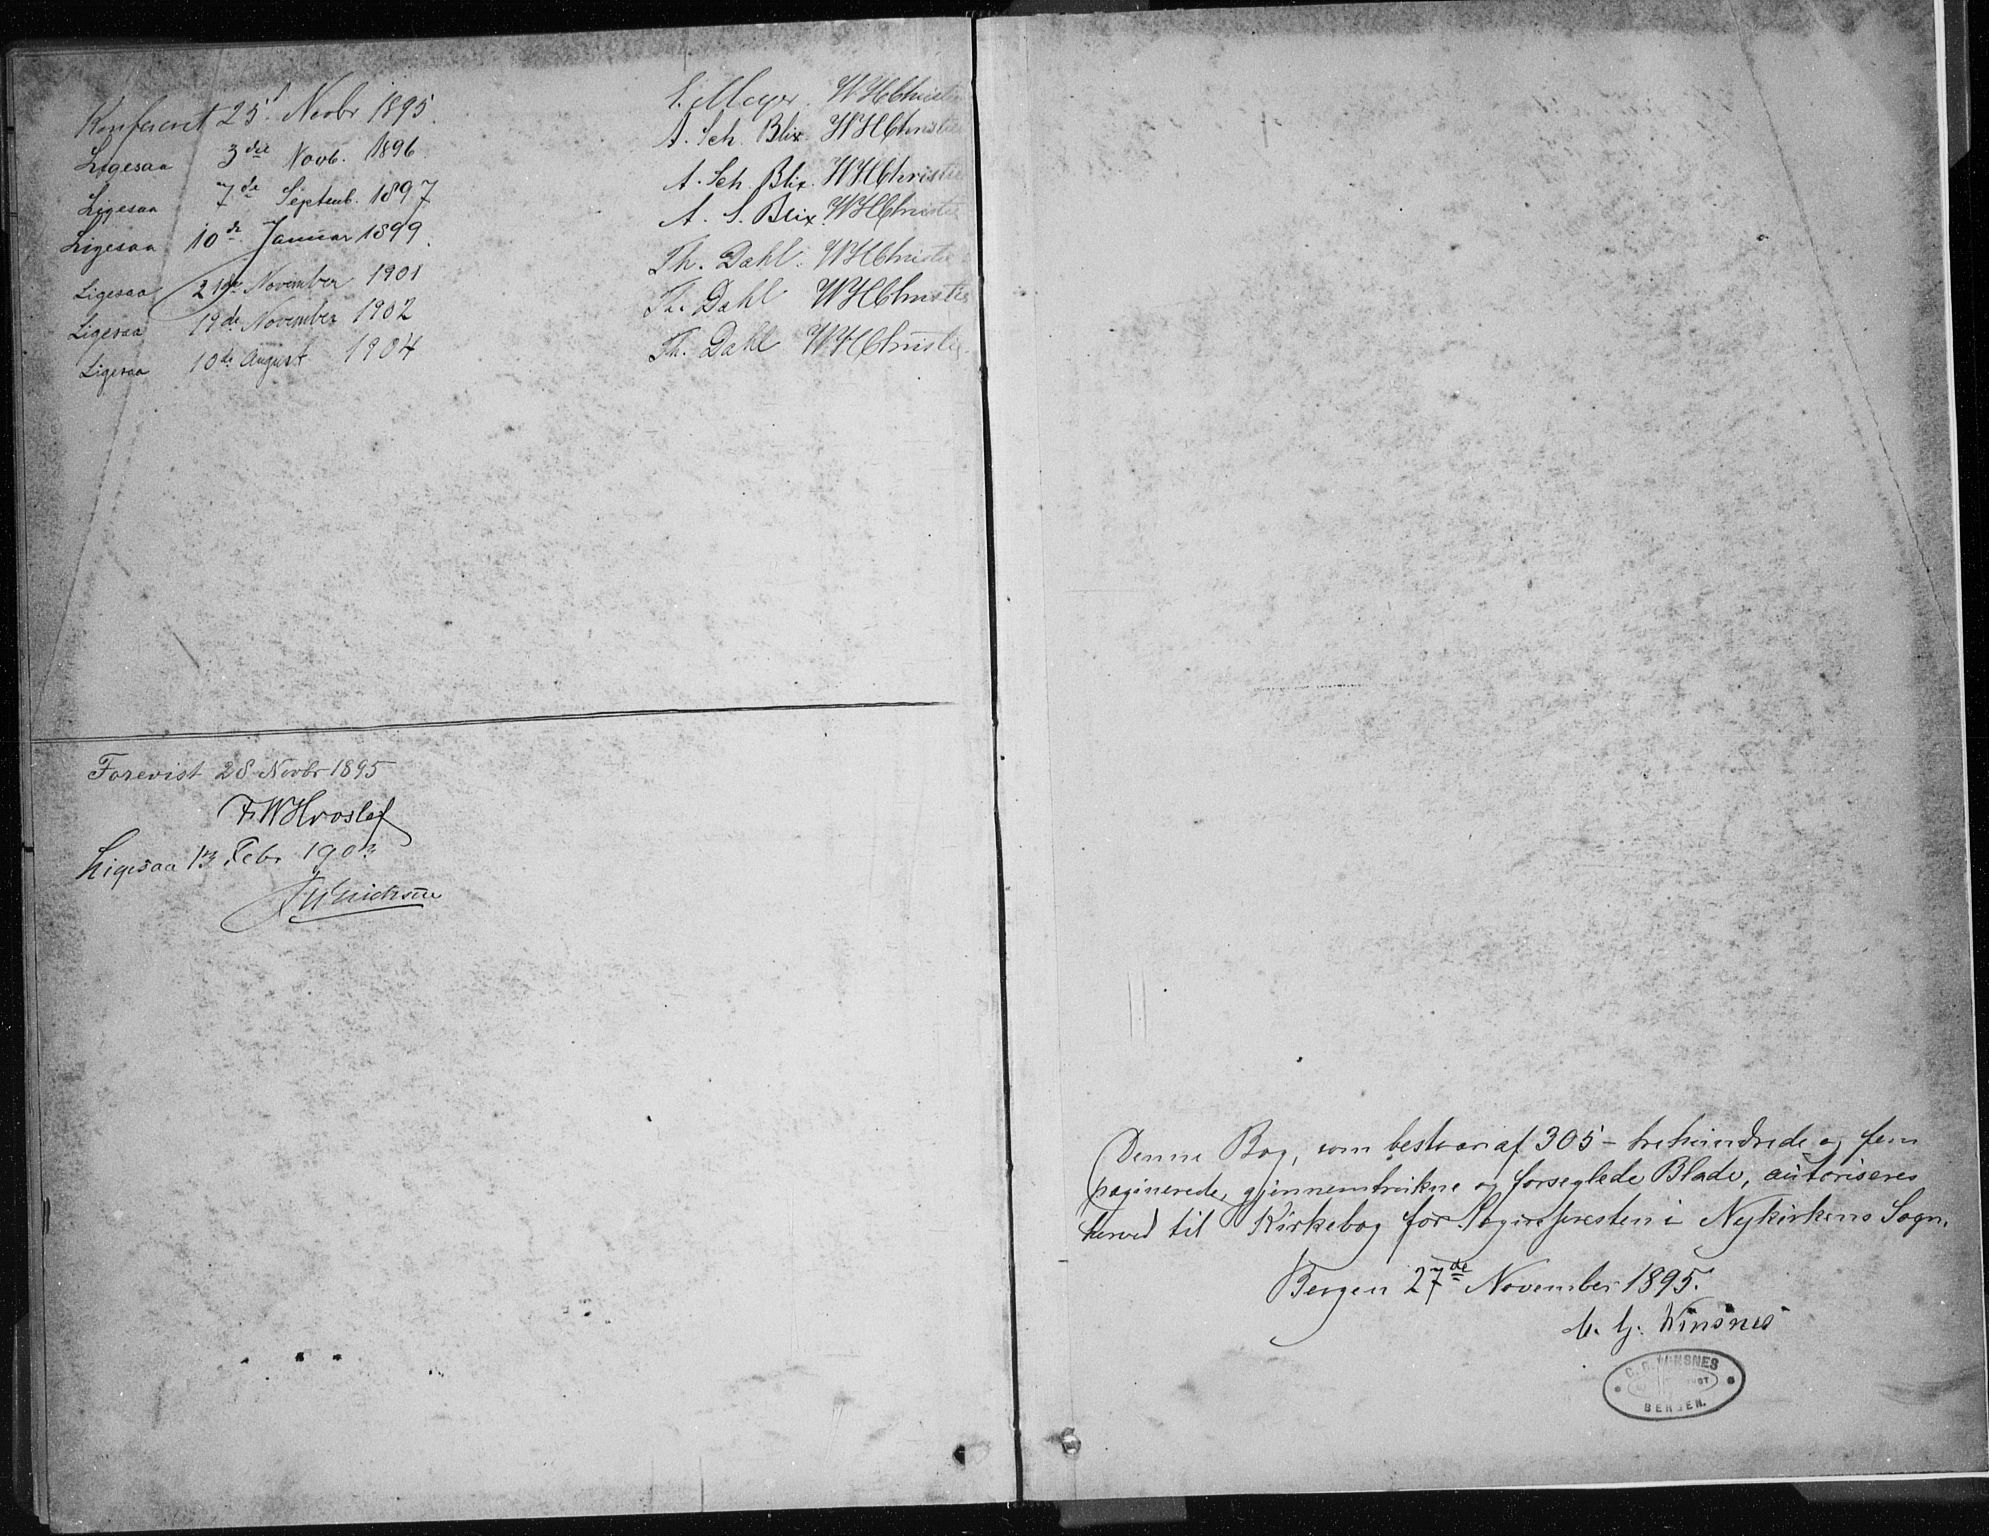 Konfereret 25. Novbr 1895. S. Meyer. WHChristie
Ligesaa 3die Novb. 1896. A. Sch. Blix. WHChristie
Ligesaa 7de Septemb. 1897 A. Sch. Blix. WHChristie
Ligesaa 10de Januar 1899. A. S. Blix. WHChristie
Ligesaa 21de November 1901 Th. Dahl. WHChristie
Ligesaa 19de November 1902 Th. Dahl WHChristie
Ligesaa 10de August 1904 Th. Dahl WHChristie
Forevist 28 Novbr 1895
FWHvoslef
Ligesaa 13 Febr 1903
Denne Bog, som bestaar af 305 - trehundrede og fem
paginerede, gjennemtrukne og forseglede Blade, autoriseres
herved til Kirkebog for Sognepresten i Nykirkens Sogn.
Bergen 27de November 1895.
C. G. Winsnes
C. G. WINSNES
BERGEN.